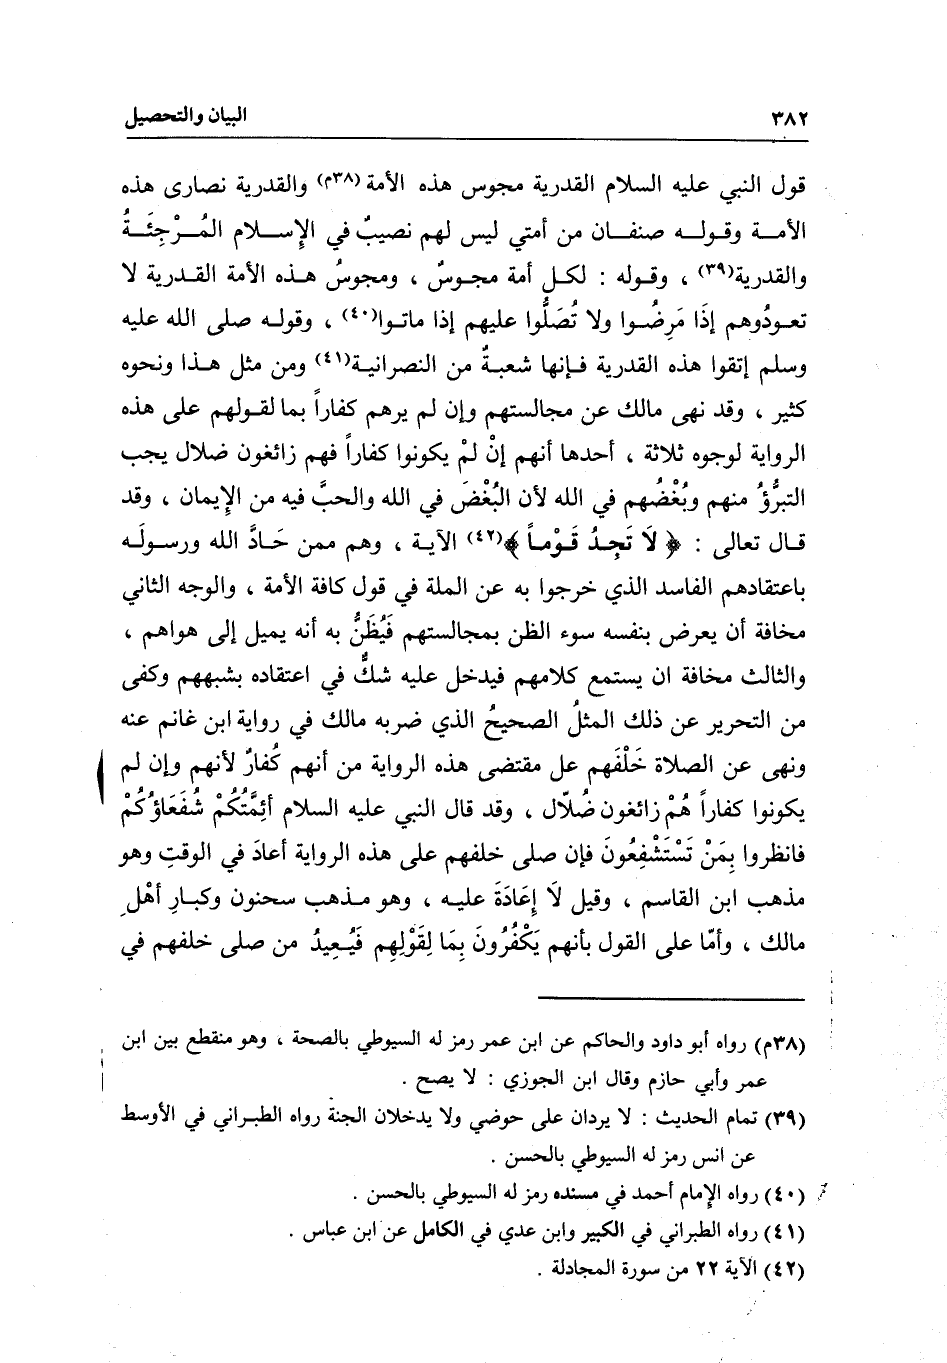 ٣٨٢
البيان والتحصيل
قول النبي عليه السلام القدرية مجوس هذه الأمة (٣٨م) والقدرية نصارى هذه
الأمــة وقولــه صنفــان من أمتي ليس لهم نصيبٌ في الإِســلام المُــرْجِئَــةُ
والقدرية(٣٩) ، وقــوله : لكــل أمة مجــوسٌ ، ومجوسُ هــذه الأمة القــدرية لا
تعــودُوهم إِذَا مَرِضُــوا ولا تُصَلُّوا عليهم إذا ماتــوا(٤٠) ، وقولــه صلى الله عليه
وسلم إتقوا هذه القدرية فــإنها شعبــةٌ من النصرانيــة(٤١) ومن مثل هــذا ونحوه
كثير ، وقد نهى مالك عن مجالستهم وإن لم يرهم كفاراً بما لقــولهم على هذه
الرواية لوجوه ثلاثة ، أحدها أنهم إنْ لمْ يكونوا كفاراً فهم زائغون ضلال يجب
التبرُّؤُ منهم وبُغْضُهم في الله لأن البُغْضَ في الله والحبَّ فيه من الإِيمان ، وقد
قــال تعالى : ﴿ لَا تَجِــدُ قَــوْمــاً ﴾(٤٢) الآيــة ، وهم ممن حَــادَّ الله ورســولَــه
باعتقادهم الفاسد الذي خرجوا به عن الملة في قول كافة الأمة ، والوجه الثاني
مخافة أن يعرض بنفسه سوء الظن بمجالستهم فَيُظَنُّ به أنه يميل إلى هواهم ،
والثالث مخافة ان يستمع كلامهم فيدخل عليه شكٌّ في اعتقاده بشبههم وكفى
من التحرير عن ذلك المثلُ الصحيحُ الذي ضربه مالك في رواية ابن غانم عنه
ونهى عن الصلاة خَلْفَهم عل مقتضى هذه الرواية من أنهم كُفارٌ لأنهم وإن لم
يكونوا كفاراً هُمْ زائغون ضُلّال ، وقد قال النبي عليه السلام أَئِمَّتُكُمْ شُفَعَاؤُكُمْ
فانظروا بِمَنْ تَسْتَشْفِعُونَ فإن صلى خلفهم على هذه الرواية أعادَ في الوقتِ وهو
مذهب ابن القاسم ، وقيل لَا إِعَادَةَ عليــه ، وهو مــذهب سحنون وكبــارِ أهْلِ
مالك ، وأمّا على القول بأنهم يَكْفُرُونَ بِمَا لِقَوْلِهِم فَيُــعِيدُ من صلى خلفهم في
(٣٨م) رواه أبو داود والحاكم عن ابن عمر رمز له السيوطي بالصحة ، وهو منقطع بين ابن
عمر وأبي حازم وقال ابن الجوزي : لا يصح .
(٣٩) تمام الحديث : لا يردان على حوضي ولا يدخلان الجنة رواه الطبــراني في الأوسط
عن انس رمز له السيوطي بالحسن .
(٤٠) رواه الإمام أحمد في مسنده رمز له السيوطي بالحسن .
(٤١) رواه الطبراني في الكبير وابن عدي في الكامل عن ابن عباس .
(٤٢) الآية ٢٢ من سورة المجادلة .